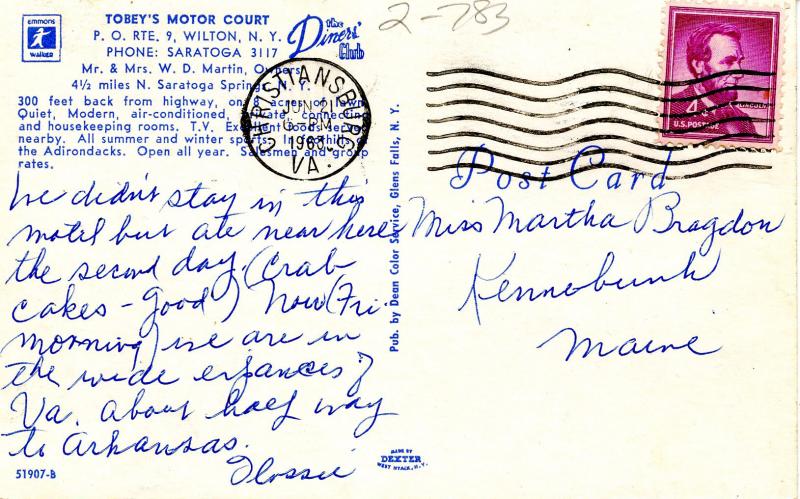 emmons
walker
TOBEY'S MOTOR COURT
P. O. RTE. 9, WILTON, N. Y.
PHONE: SARATOGA 3117
Mr. & Mrs. W. D. Martin, Owners
4½ miles N. Saratoga Springs, N. Y.
300 feet back from highway, on 8 acres of lawn.
Quiet, Modern, air-conditioned, private, connecting
and housekeeping rooms. T.V. Excellent foods served
nearby. All summer and winter sports. In foothills of
the Adirondacks. Open all year. Salesmen and group
rates.
the
Diners'
Club
2-783
CHRISTIANSBURG
JUN 21
PM
1963
VA.
4¢
LINCOLN
U.S. POSTAGE
Post Card
We didn't stay in this
motel but ate near here
the second day. (Crab
cakes - good) Now (Fri
morning) we are in
the wide expances of
Va. About half way
to Arkansas.
Flossie
Miss Martha Bragdon
Kennebunk
Maine
Pub. by Dean Color Service, Glens Falls, N. Y.
51907-B
MADE BY
DEXTER
WEST NYACK, N.Y.